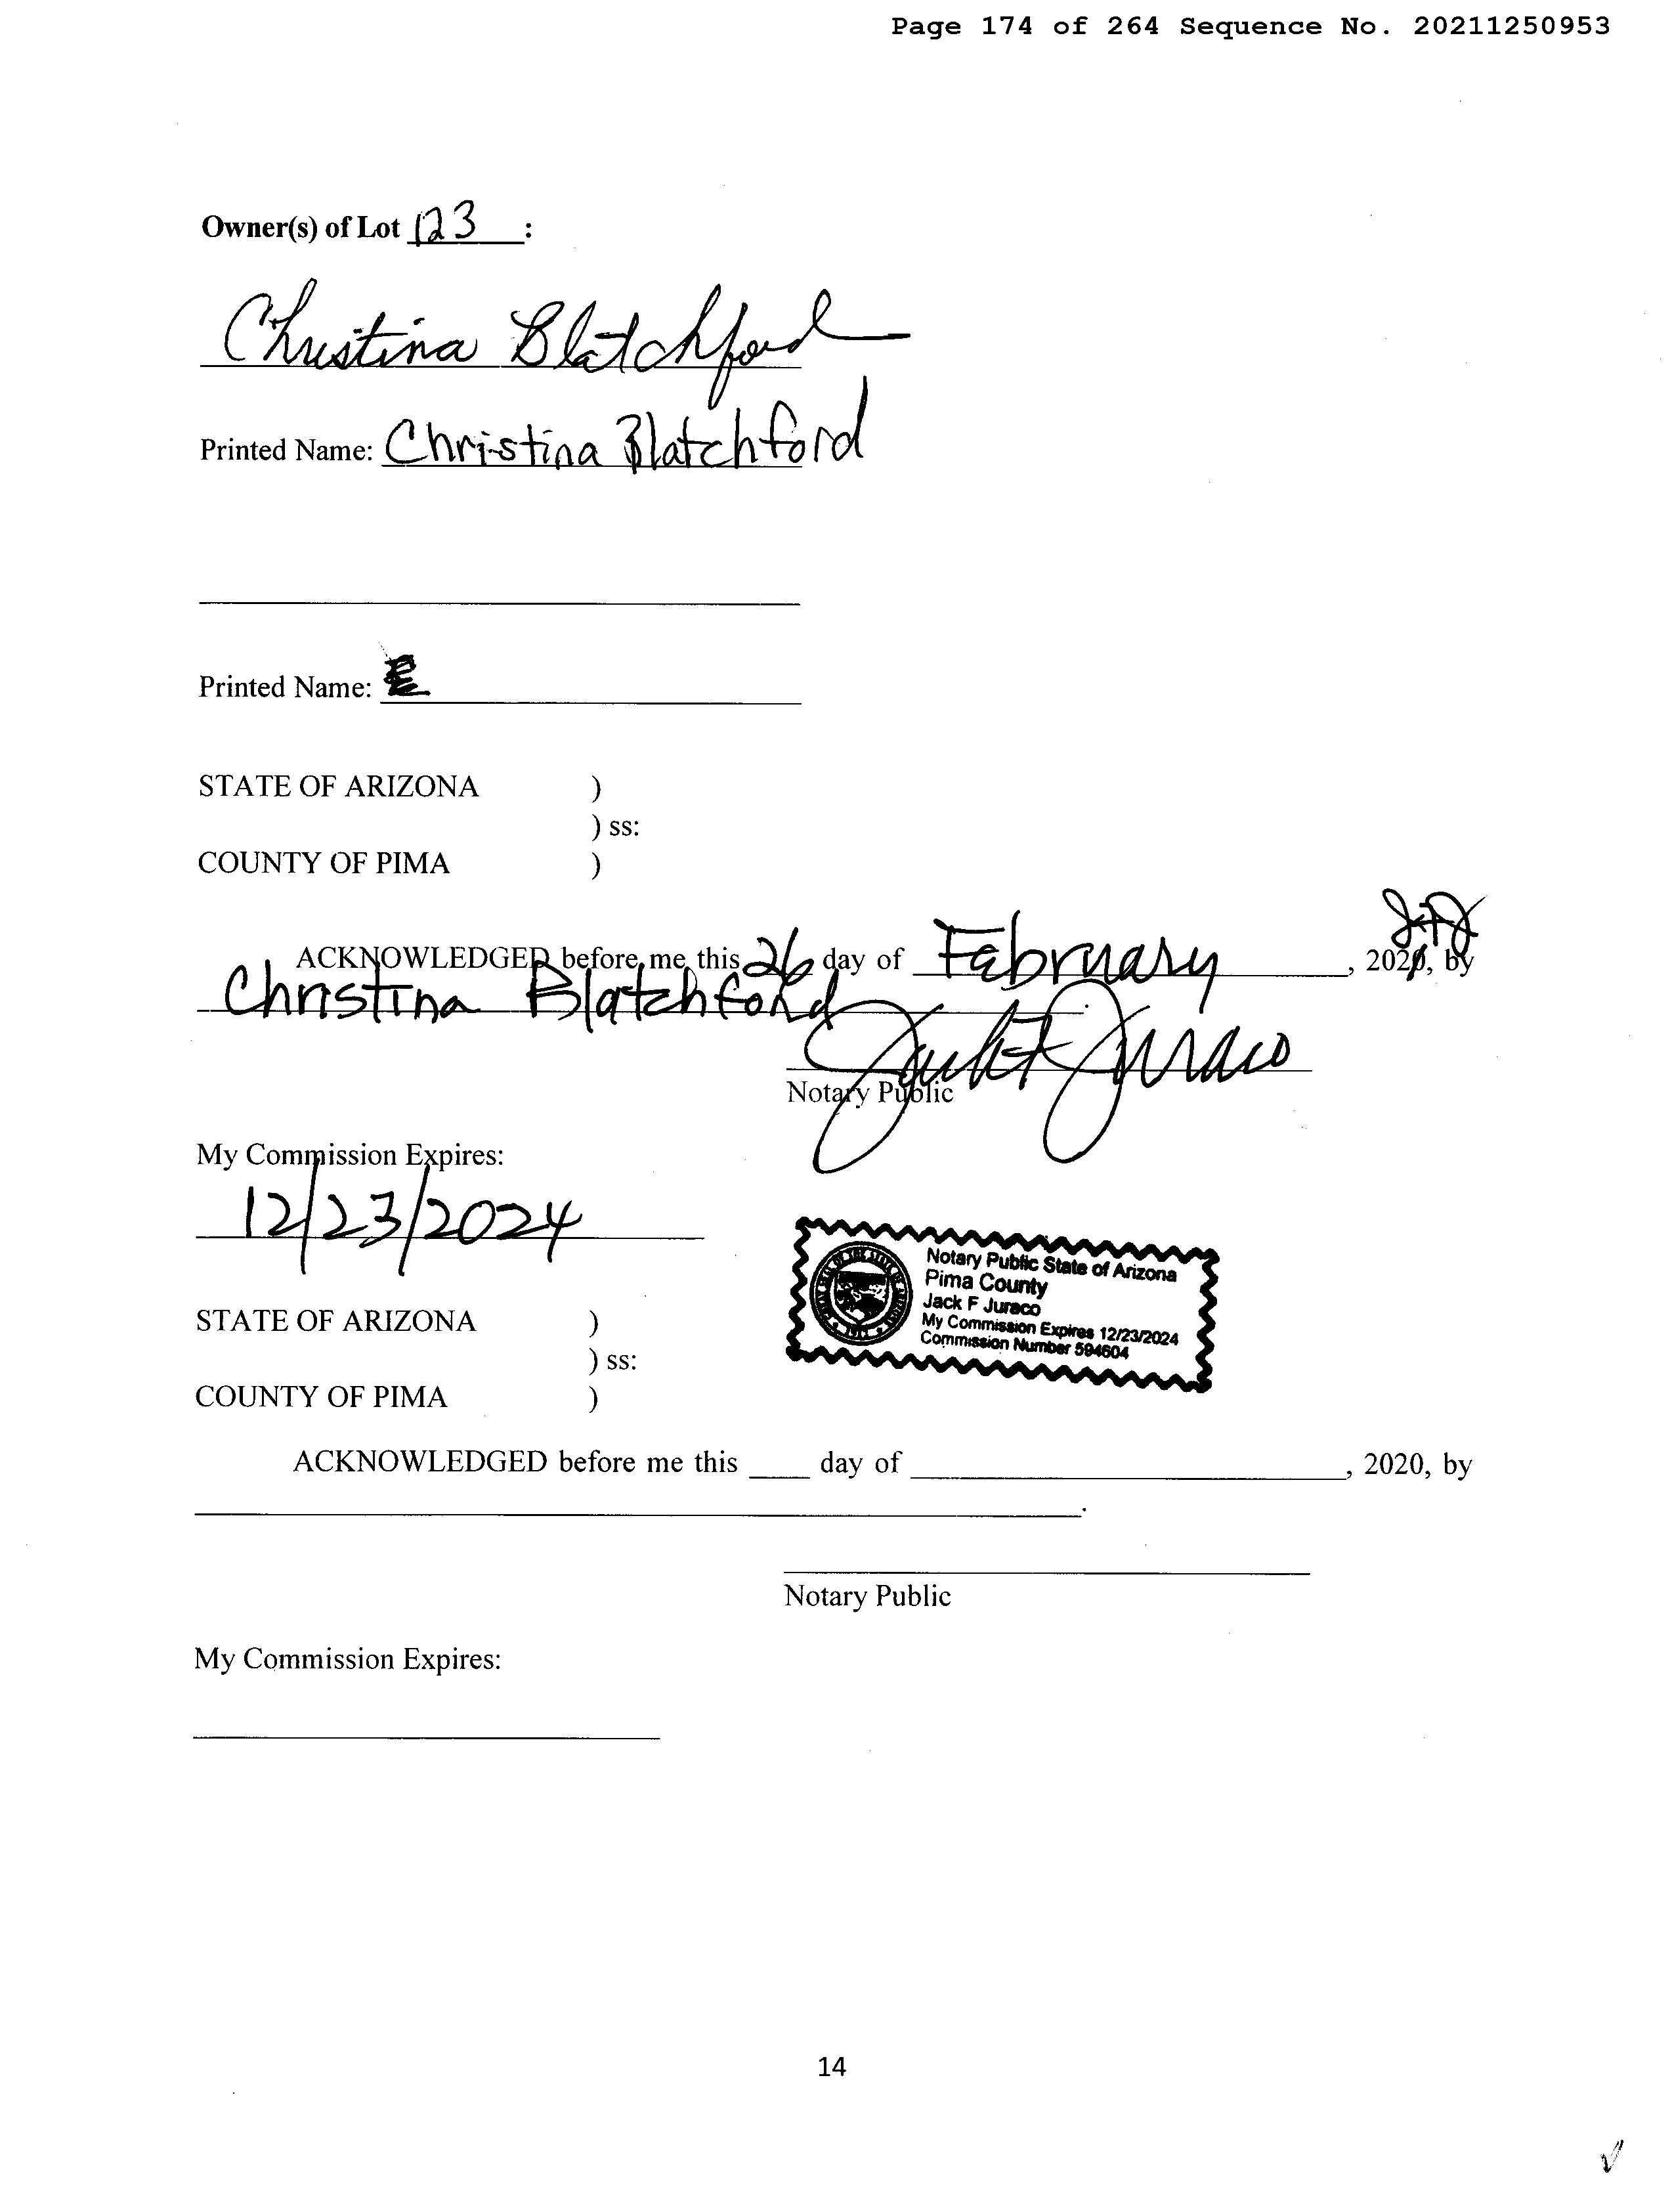 Page 174 of 264 Sequence No. 20211250953
Owner(s) of Lot 123 :
Christina Blatchford
Printed Name: Christina Blatchford
Printed Name:
STATE OF ARIZONA )
) ss:
COUNTY OF PIMA )
ACKNOWLEDGED before me this 26 day of February, 2021, by
Christina Blatchford.
Jack F Juraco
Notary Public
My Commission Expires:
12/23/2024
Notary Public State of Arizona
Pima County
Jack F Juraco
My Commission Expires 12/23/2024
Commission Number 594604
STATE OF ARIZONA )
) ss:
COUNTY OF PIMA )
ACKNOWLEDGED before me this ____ day of ____, 2020, by
Notary Public
My Commission Expires:
14